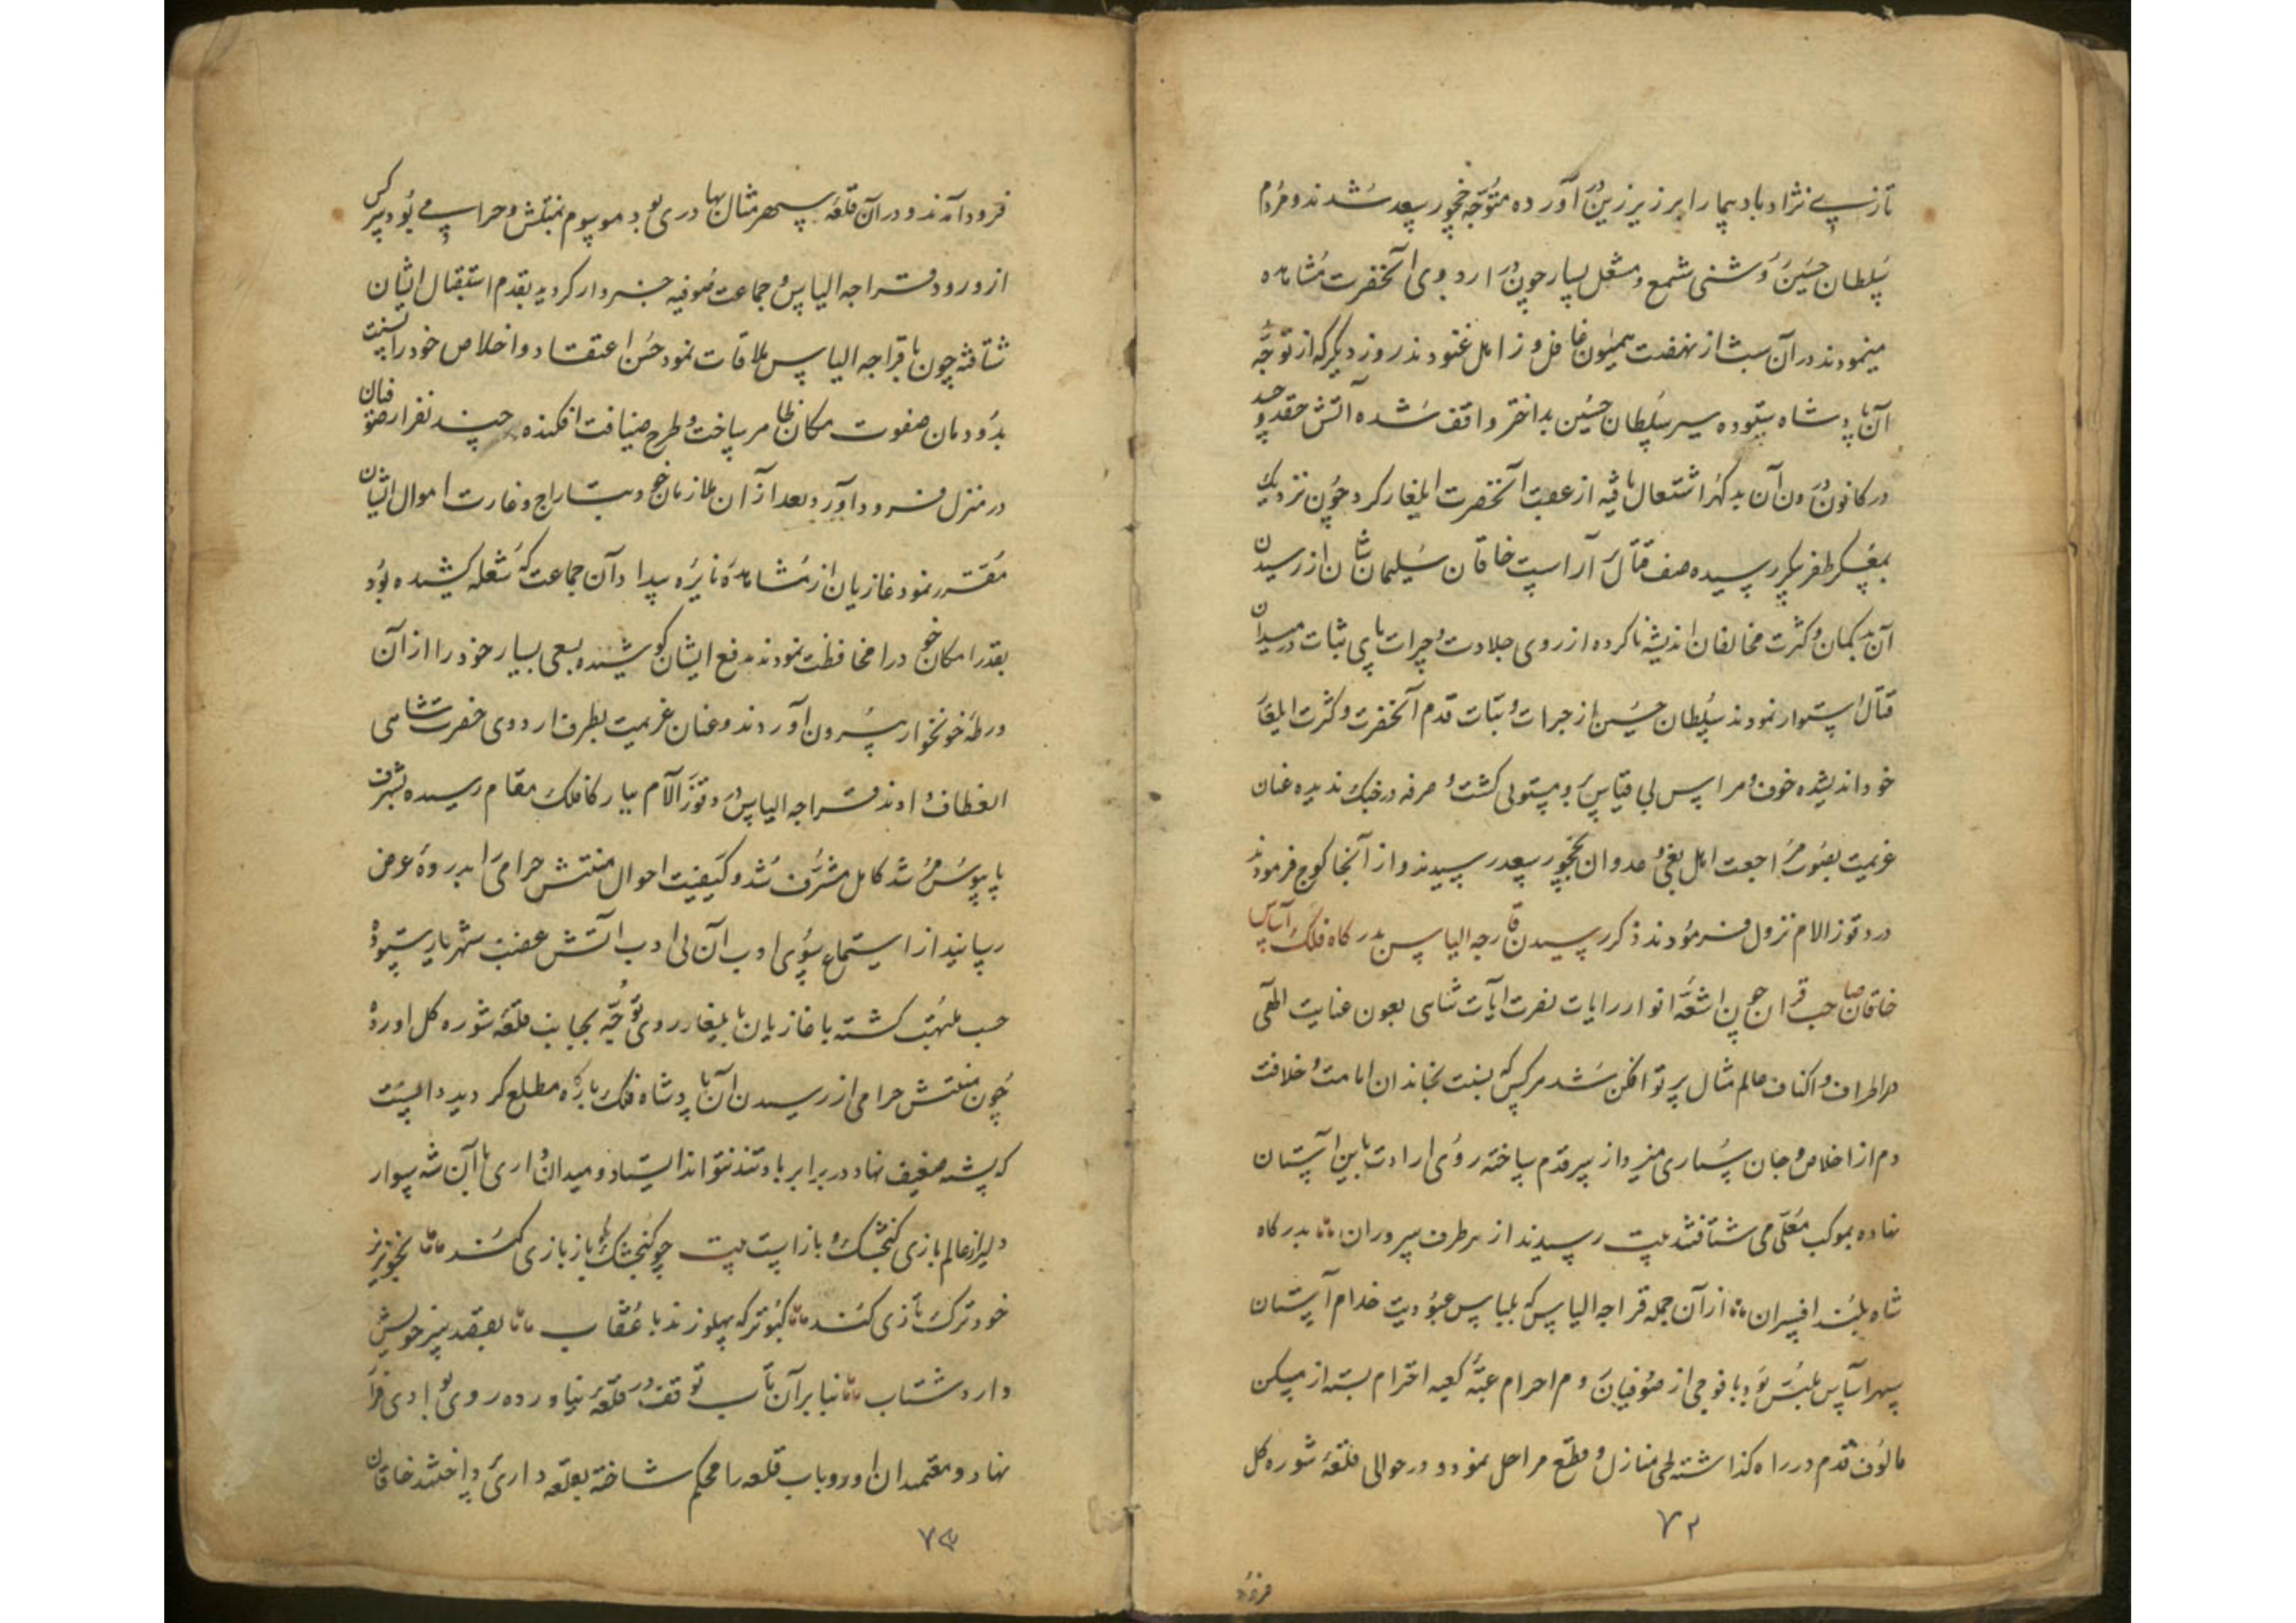 تازی نژاد باد پیما را بر زیر زین در آورده متوجه چخور سعد شدند و مردم
سلطان حسین روشنی شمع و مشعل بسیار چون در اردوی آنحضرت مشاهده
مینمودند در آن شب از نهضت همیون غافل و زاهل غنودند روز دیگر که از توجه
آن پادشاه ستوده سیر سلطان حسین بداختر واقف شده آتش حقد و حسد
در کانون درون آن بدگهر اشتعال یافته از عقب آنحضرت ایلغار کرد چون نزدیک
بعسکر ظفر پیکر رسیده صف قتال آراست خاقان سلیمان شان از رسیدن
آن بدگمان و کثرت مخالفان اندیشه ناکرده از روی جلادت و جرات پای ثبات در میدان
قتال استوار نمودند سلطان حسین از جرات و ثبات قدم آنحضرت و کثرت ایلغار
خود اندیشیده خوف و هراس بی قیاس برو مستولی گشت و صرفه در جنگ ندیده عنان
عزیمت بصوب مراجعت اهل بغی و عدوان بچخور سعد رسیدند و از آنجا کوچ فرمودند
در دوقوز الام نزول فرمودند ذکر رسیدن قراجه الیاس بدرگاه فلک آساس
خاقان صاحب قران چون اشعه انوار رایات نصرت آیات شاهی بعون عنایت الهی
در اطراف و اکناف عالم مثال پرتو افکن شد هر کس که بنسبت بخاندان امامت و خلافت
دم از اخلاص و جان سپاری میزد از سر قدم ساخته روی ارادت باین آستان
نهاده بموکب معلی می شتافتند بیت رسیدند از هر طرف سروران بدرگاه
شاه بلند افسران از آن جمله قراجه الیاس که بلباس عبودیت خدام آستان
سپهر اساس ملبس بود با فوجی از صوفیان روم احرام عتبه کعبه احترام بسته از مسکن
مالوف قدم در راه گذاشته طی منازل و قطع مراحل نمود و در حوالی قلعه شوره گل
۷۲
فرود
فرود آمدند و در آن قلعه سپهر مثال بهادری بود موسوم بمنتش و حرامی بود سرکش
از ورود قراجه الیاس و جماعت صوفیه خبردار گردید بقدم استقبال ایشان
شتافته چون با قراجه الیاس ملاقات نمود حسن اعتقاد و اخلاص خود را نسبت
بدودمان صفوت مکان ظاهر ساخت و طرح ضیافت افکنده چند نفر از صوفیان
در منزل فرود آورد و بعد از آن ملازمان خود بتاراج و غارت اموال ایشان
مقرر نمود غازیان از مشاهده نایره بیداد آن جماعت که شعله کشیده بود
بقدر امکان خود را محافظت نمودند بدفع ایشان کوشیده بسعی بسیار خود را از آن
ورطه خونخوار بیرون آوردند و عنان عزیمت بطرف اردوی حضرت شاهی
انعطاف دادند قراجه الیاس در دوقوز الآم ببارگاه فلک مقام رسیده بشرف
پابوس مرشد کامل مشرف شد و کیفیت احوال منتش حرامی را بذروه عرض
رسانید از استماع سوی ادب آن بی ادب آتش غضب شهریار ستوده
حسب ملتهب گشته با غازیان بایلغار روی توجه بجانب قلعه شوره گل آورده
چون منتش حرامی از رسیدن آن پادشاه فلک بارگاه مطلع گردید دانست
که پشه ضعیف نهاد در برابر باد تند نتواند ایستاد و میدان داری با آن شه سوار
دلیر از عالم بازی گنجشک و باز است بیت چو گنجشک با باز بازی کند بخونریز
خود ترک تازی کند کبوتر که پهلو زند با عقاب بقصد سر خویش
دارد شتاب بنابر آن تاب توقف در قلعه نیاورده روی بوادی فرار
نهاد و معتمدان او دروباب قلعه را محکم ساخته بقلعه داری پرداختند خاقان
۷۳